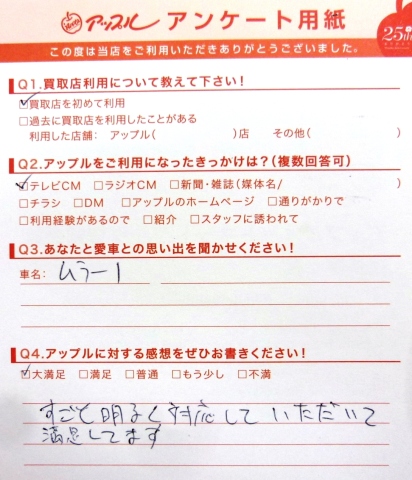 アップル アンケート用紙
25th
この度は当店をご利用いただきありがとうございました。
Q1.買取店利用について教えて下さい!
☑買取店を初めて利用
□過去に買取店を利用したことがある
利用した店舗: アップル( )店 その他( )
Q2.アップルをご利用になったきっかけは?(複数回答可)
☑テレビCM □ラジオCM □新聞・雑誌(媒体名/ )
□チラシ □DM □アップルのホームページ □通りがかりで
□利用経験があるので □紹介 □スタッフに誘われて
Q3.あなたと愛車との思い出を聞かせてください!
車名: ムラーノ
Q4.アップルに対する感想をぜひお書きください!
☑大満足 □満足 □普通 □もう少し □不満
すごと明るく対応していただいて
満足してます